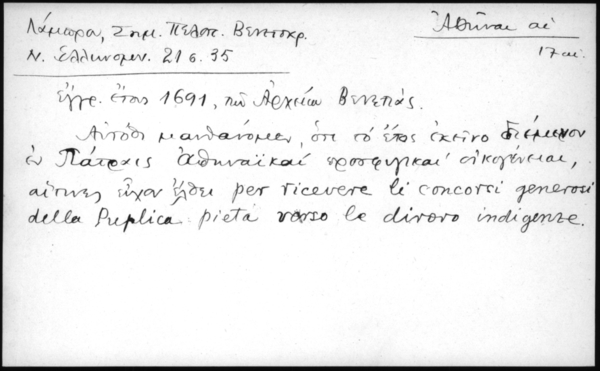 Λάμπρου, Σημ. Πελοπ. Βενετοκρ.
Ἀθῆναι αἱ
Ν. Ἑλληνομν. 21 σ. 35
17 αἰ.
Ἔγγρ. ἔτους 1691, τοῦ Ἀρχείου Βενετίας.
Αὐτόθι μανθάνομεν, ὅτι τὸ ἔτος ἐκεῖνο διέμενον
ἐν Πάτραις Ἀθηναϊκαί προσφυγικαί οἰκογένειαι,
αἵτινες εἶχον ἔλθει per ricevere li concorsi generosi
della Publica pietà verso le divoro indigenze.